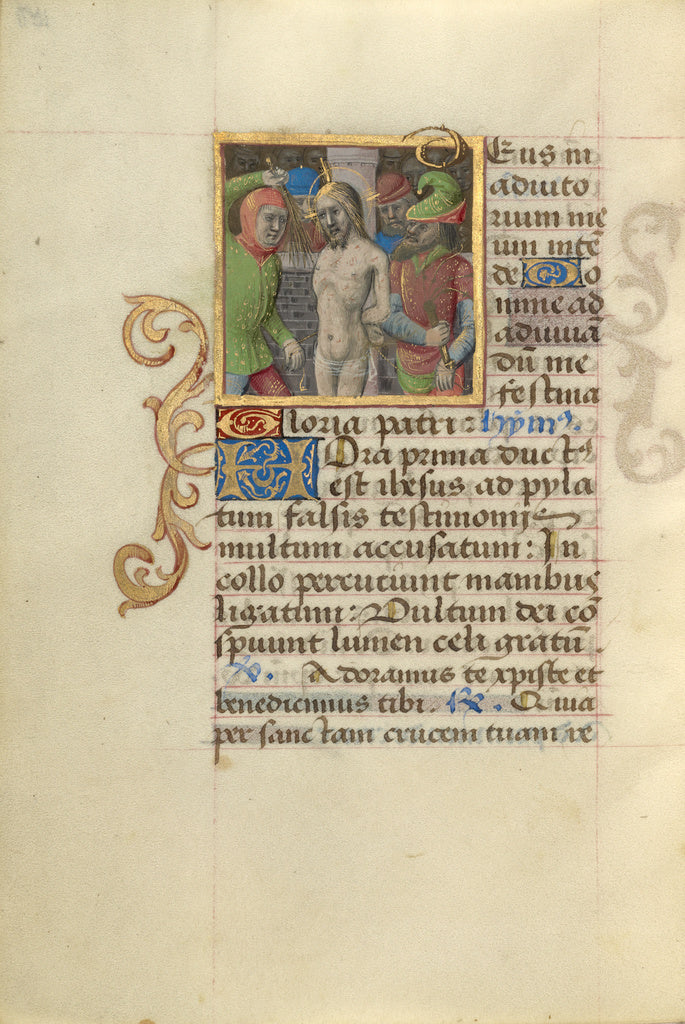 Deus in
adiuto
rium me
um intē
de Do
mine ad
adiuuā
dū me
festina
Gloria patri: hymꝰ.
Hora prima ductꝰ
est ihesus ad pyla
tum falsis testimoniis
multum accusatum: In
collo percutiunt manibus
ligatum: Vultum dei cō
spuunt lumen celi gratū.
℣. Adoramus te xpiste et
benedicimus tibi. ℟. Quia
per sanctam crucem tuam re